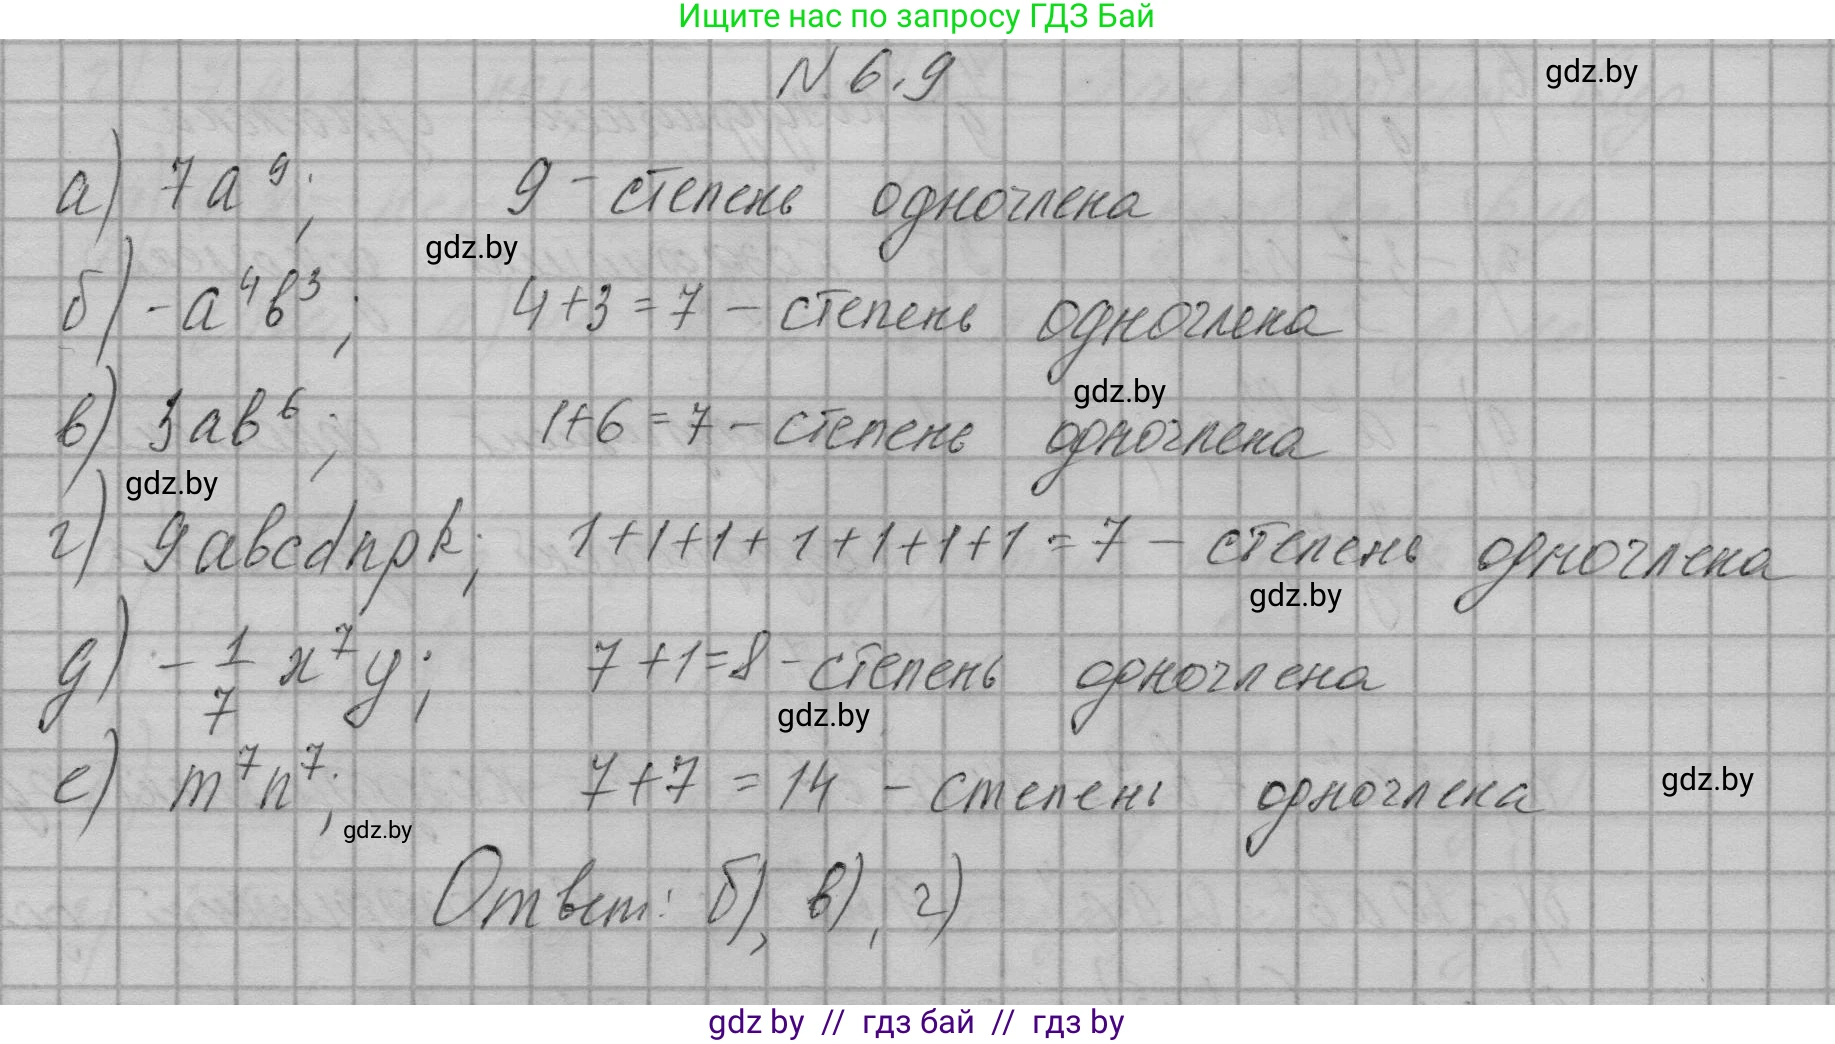 Ищите нас по запросу ГДЗ Бай
N 6.9
gdz.by
а) 7a⁹; 9 - степень одночлена
gdz.by
б) -a⁴b³; 4+3=7 - степень одночлена
gdz.by
в) 3ab⁶; 1+6=7 - степень одночлена
gdz.by
г) 9abcdnpk; 1+1+1+1+1+1+1=7 - степень одночлена
gdz.by
д) -1/7 x⁷y; 7+1=8 - степень одночлена
gdz.by
е) m⁷n⁷; 7+7=14 - степень одночлена
gdz.by
gdz.by
Ответ: б), в), г)
gdz by // гдз бай // гдз by